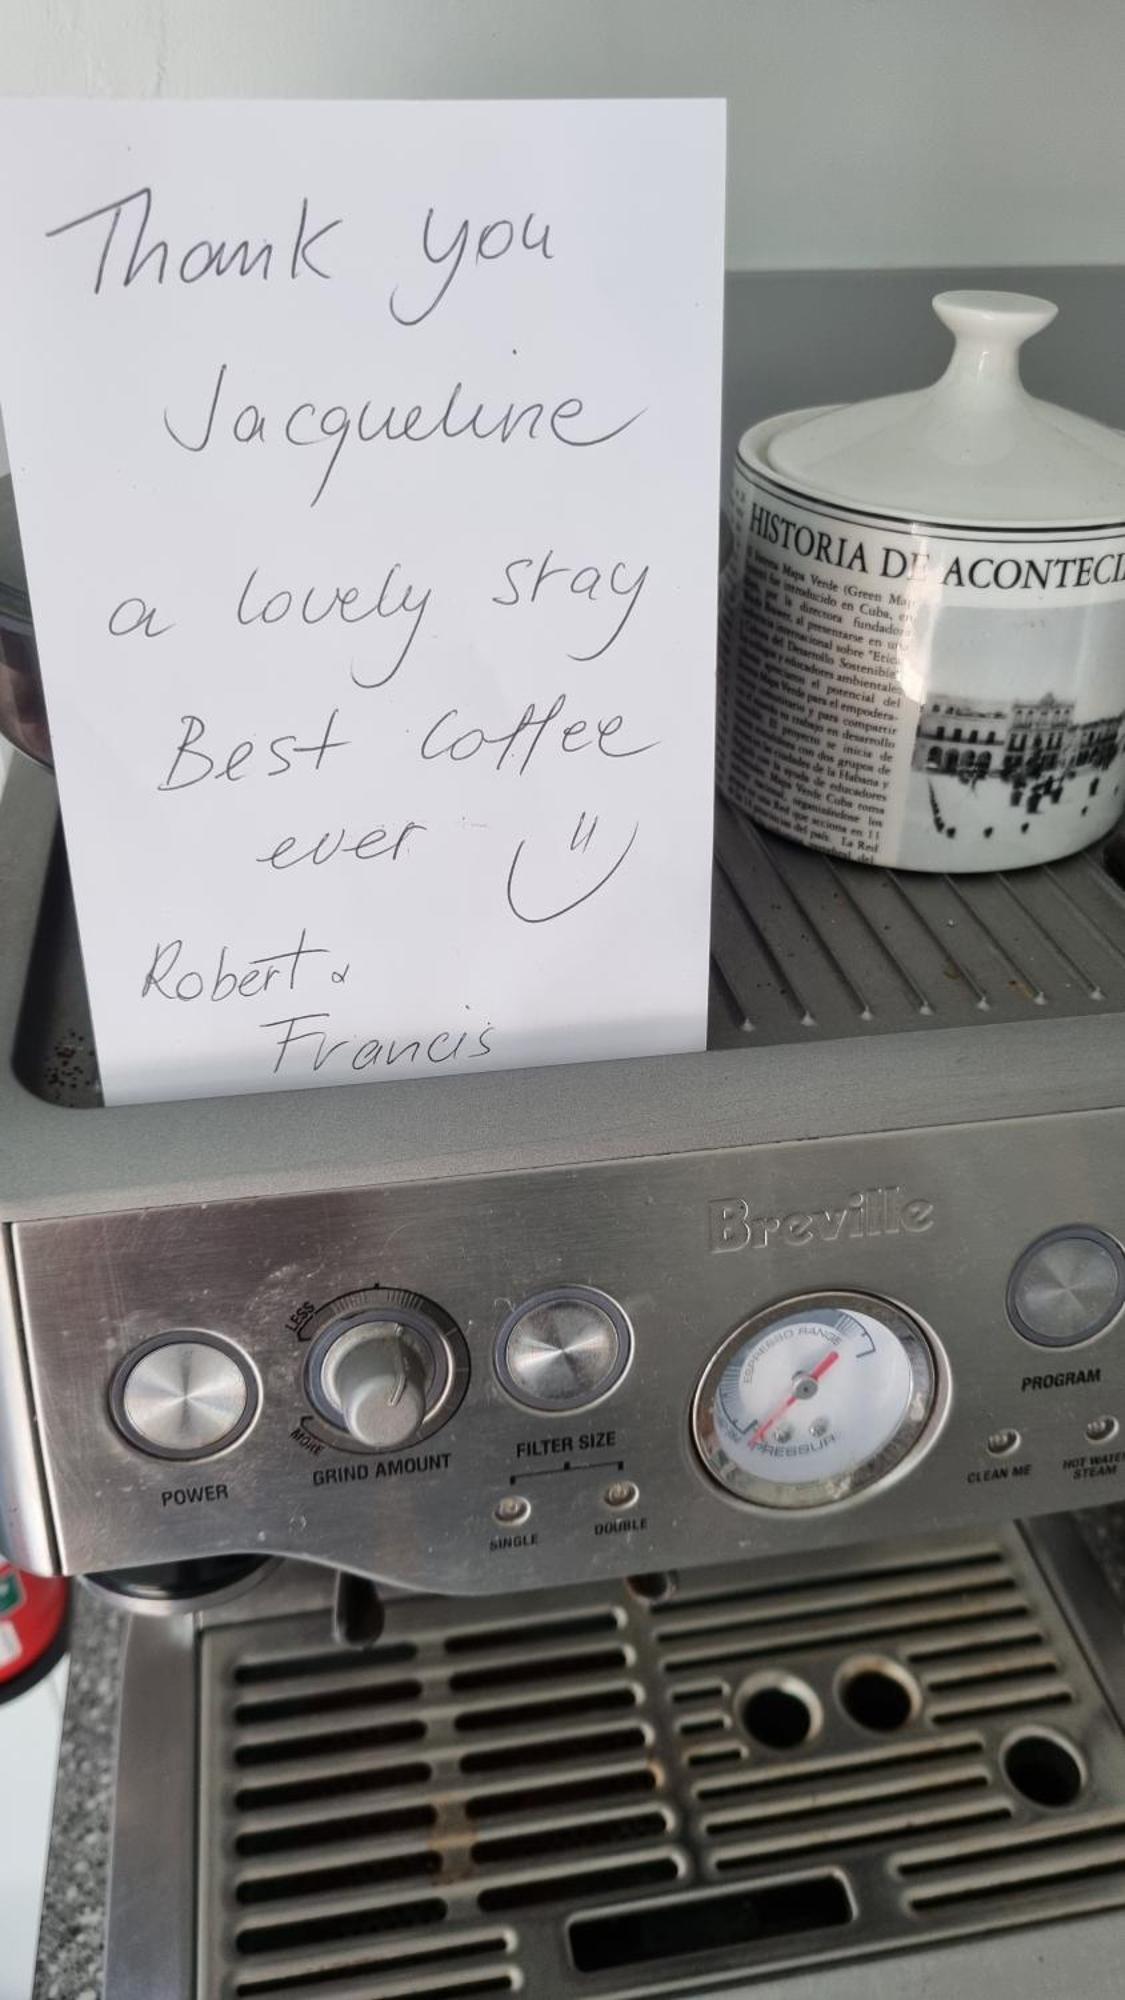 Thank you
Jacqueline
a lovely stay
Best Coffee
ever
Robert &
Francis
HISTORIA DE ACONTECI
Mapa Verde (Green Ma
introducido en Cuba, en
por la directora fundadora
al presentarse en un
internacional sobre "Etica
del Desarrollo Sostenible"
y educadores ambientales
el potencial del
Mapa Verde para el empodera-
comunitario y para compartir
su trabajo en desarrollo
El proyecto se inicia de
con dos grupos de
las ciudades de la Habana y
ayuda de educadores
Mapa Verde Cuba
organizándose los
una Red que acciona en 11
provincias del país. La Red
del
Breville
LESS
MORE
POWER
GRIND AMOUNT
FILTER SIZE
SINGLE
DOUBLE
ESPRESSO RANGE
PRESSUR
PROGRAM
CLEAN ME
HOT WATER
STEAM